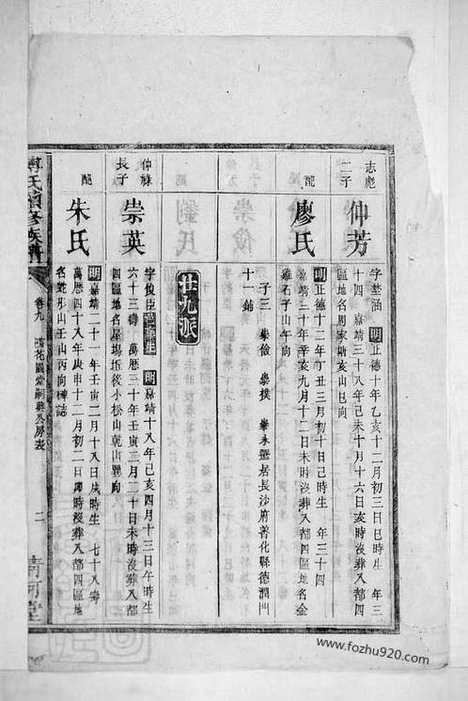 志彪
二子
仲芳
字楚涵 明正德十年乙亥十二月初三日巳時生 年三
十四 嘉靖三十八年己未十月十六日亥時沒葬入都四
區地名周家坳亥山巳向
配
廖氏
明正德十二年丁丑三月初十日己時生 年三十四
嘉靖三十年辛亥九月十二日未時沒葬入都四區地名金
雞石子山午向
子三 崇儉 崇撲 崇永遷居長沙府善化縣德潤門
十一鋪
廿九派
仲祿
長子
崇英
字俊臣 明嘉靖十八年己亥四月十三日午時生
六十三壽 萬曆三十年壬寅三月二十日未時沒葬入都
四區地名屋場坵後小松山乾山巽向
配
朱氏
明嘉靖二十一年壬寅二月十八日戌時生 七十八壽
萬曆四十八年庚申十二月初二日 時沒葬入都四區地
名蛇形山壬山丙向碑誌
氏續修族譜
卷九
二
清河堂
www.fozhu920.com